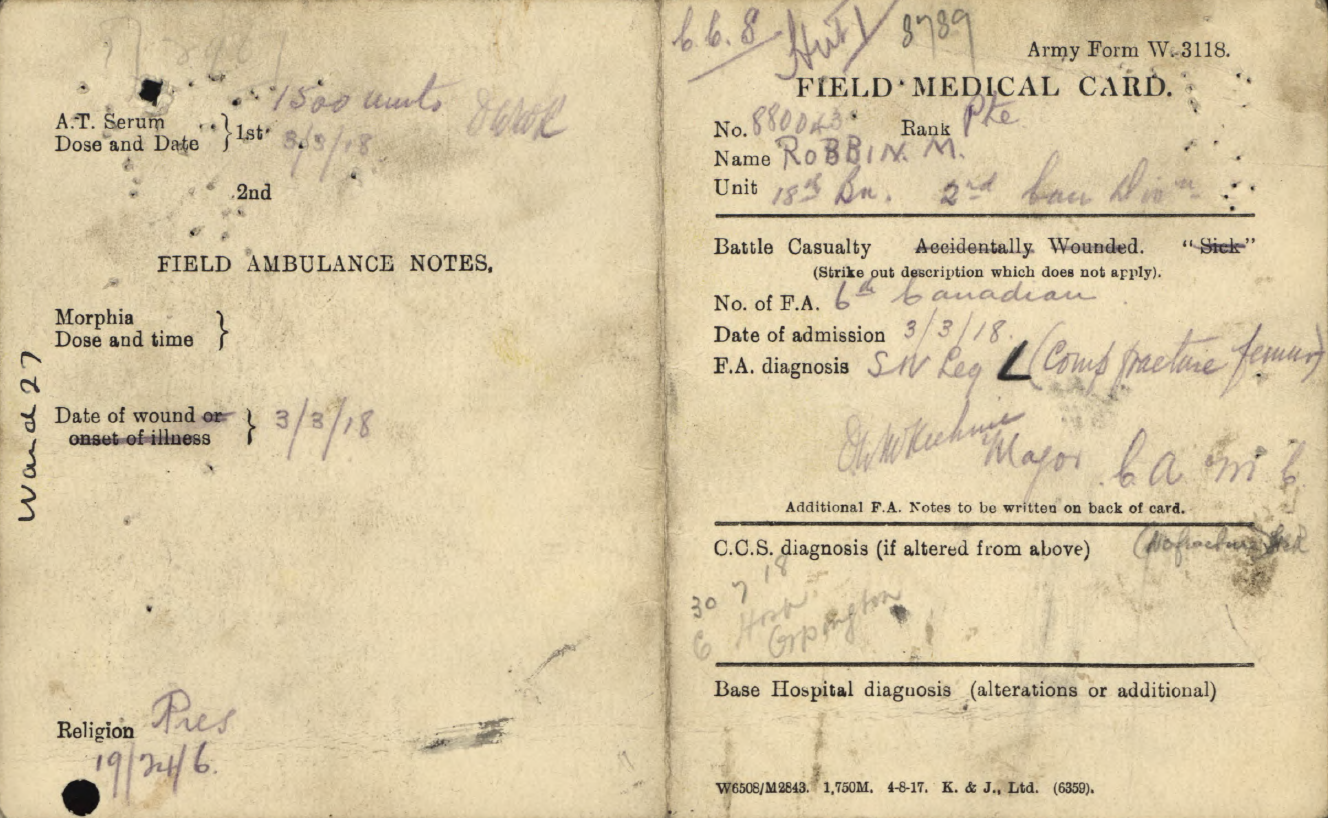 A.T. Serum
Dose and Date } 1st 1500 units
3/3/18
2nd
FIELD AMBULANCE NOTES.
Morphia
Dose and time }
Ward 27
Date of wound or
onset of illness } 3/3/18
Religion Pres
19/24/6.
C.C.S Hut 1 8789
Army Form W. 3118.
FIELD MEDICAL CARD.
No. 880043 Rank Pte
Name ROBBIN. M.
Unit 18th Bn. 2nd Can Divn
Battle Casualty Accidentally Wounded. "Sick"
(Strike out description which does not apply).
No. of F.A. 6th Canadian
Date of admission 3/3/18.
F.A. diagnosis SW Leg L (Comp fracture femur)
Major C A M C
Additional F.A. Notes to be written on back of card.
C.C.S. diagnosis (if altered from above) (No fracture)
30 7 18
6 Hosp
Orpington
Base Hospital diagnosis (alterations or additional)
W6508/M2843. 1,750M. 4-8-17. K. & J., Ltd. (6359).